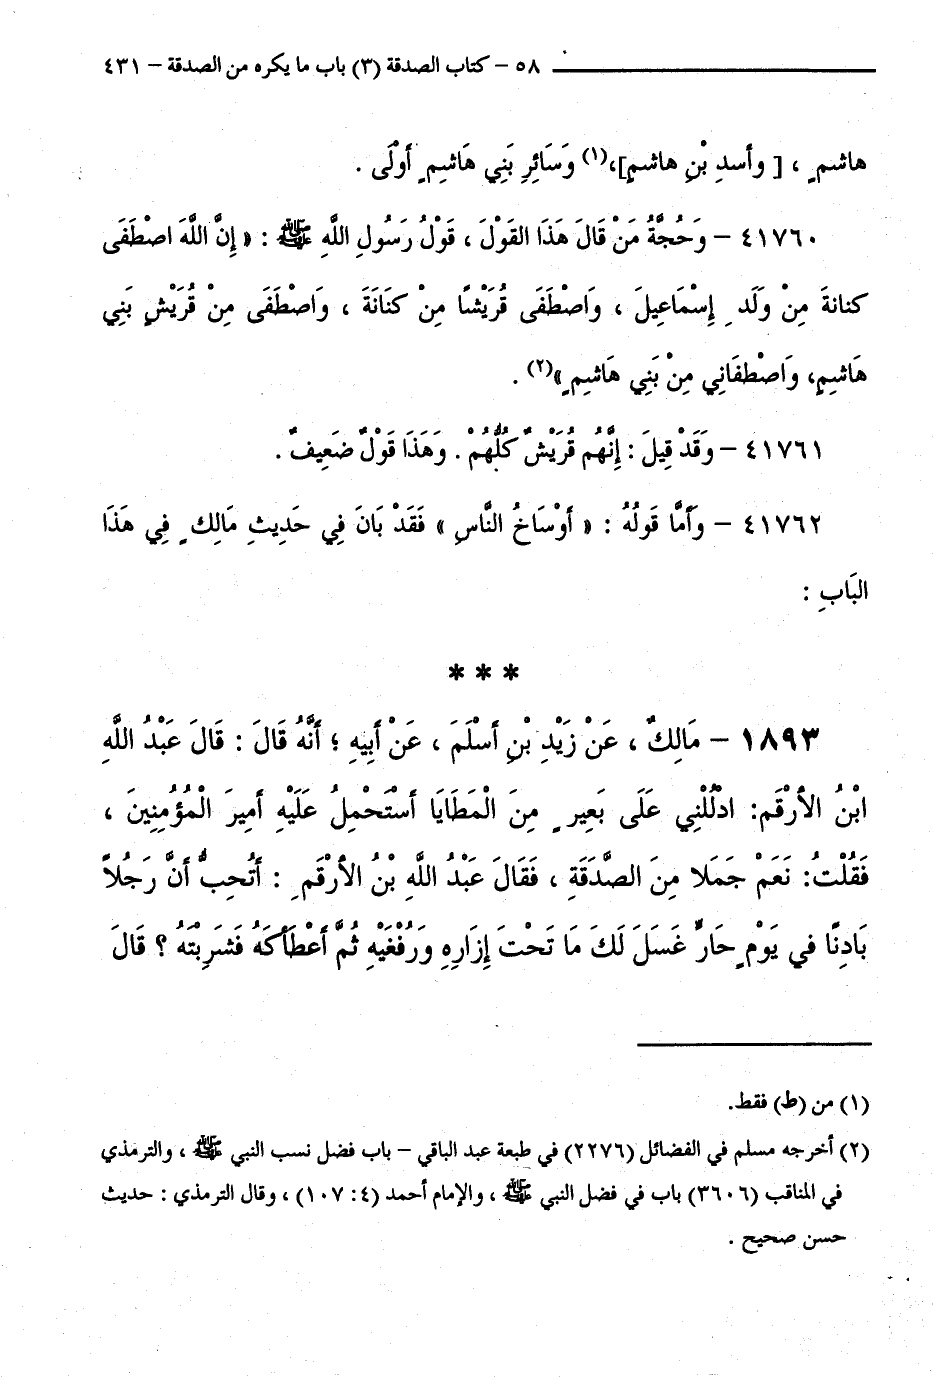 ٥٨ – كتاب الصدقة (٣) باب ما يكره من الصدقة – ٤٣١
هاشمٍ ، [ وأسدِ بْنِ هاشمٍ]،(١) وَسَائِرِ بَنِي هَاشِمٍ أَوْلَى .
٤١٧٦٠ – وَحُجَّةُ مَنْ قَالَ هَذَا القَوْلَ ، قَوْلُ رَسُولِ اللَّهِ ﷺ : « إِنَّ اللَّهَ اصْطَفَى
كنانةَ مِنْ وَلَدِ إِسْمَاعِيلَ ، وَاصْطَفَى قُرَيْشًا مِنْ كنَانَةَ ، وَاصْطَفَى مِنْ قُرَيْشٍ بَنِي
هَاشِمٍ، وَاصْطفَانِي مِنْ بَنِي هَاشِمٍ»(٢) .
٤١٧٦١ – وَقَدْ قِيلَ : إِنَّهُم قُرَيْشٌ كُلُّهُمْ . وَهَذَا قَوْلٌ ضَعِيفٌ .
٤١٧٦٢ – وَأَمَّا قَولُهُ : « أَوْسَاخُ النَّاسِ » فَقَدْ بَانَ فِي حَدِيثِ مَالِكٍ فِي هَذَا
البَابِ :
* * *
١٨٩٣ – مَالِكٌ ، عَنْ زَيْدِ بْنِ أَسلَمَ ، عَنْ أَبِيهِ ؛ أَنَّهُ قَالَ : قَالَ عَبْدُ اللَّهِ
ابْنُ الأَرْقَمِ: ادْلُلْنِي عَلَى بَعِيرٍ مِنَ الْمَطَايَا أَسْتَحْمِلُ عَلَيْهِ أَمِيرَ الْمُؤْمِنِينَ ،
فَقُلْتُ: نَعَمْ جَمَلا مِنَ الصَّدَقَةِ ، فَقَالَ عَبْدُ اللَّهِ بْنُ الأَرْقَمِ : أَتُحِبُّ أَنَّ رَجُلاً
بَادِنًا في يَوْمٍ حَارٍّ غَسَلَ لَكَ مَا تَحْتَ إِزَارِهِ وَرُفْغَيْهِ ثُمَّ أَعْطَاكَهُ فَشَرِبْتَهُ ؟ قَالَ
(١) من (ط) فقط.
(٢) أخرجه مسلم في الفضائل (٢٢٧٦) في طبعة عبد الباقي – باب فضل نسب النبي ﷺ ، والترمذي
في المناقب (٣٦٠٦) باب في فضل النبي ﷺ ، والإمام أحمد (٤: ١٠٧) ، وقال الترمذي : حديث
حسن صحيح .